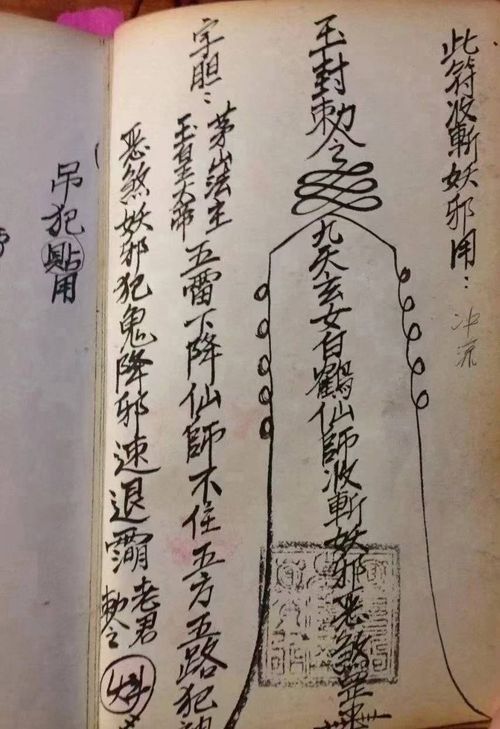 此符收斬妖邪用：
冲流
玉封勅令
九天玄女白鶴仙師收斬妖邪惡煞
字胆：
茅山法主
玉皇大帝
五雷下降仙師不住五方五路犯神
惡煞妖邪犯鬼降邪速退
老君
勅令
吊犯貼用